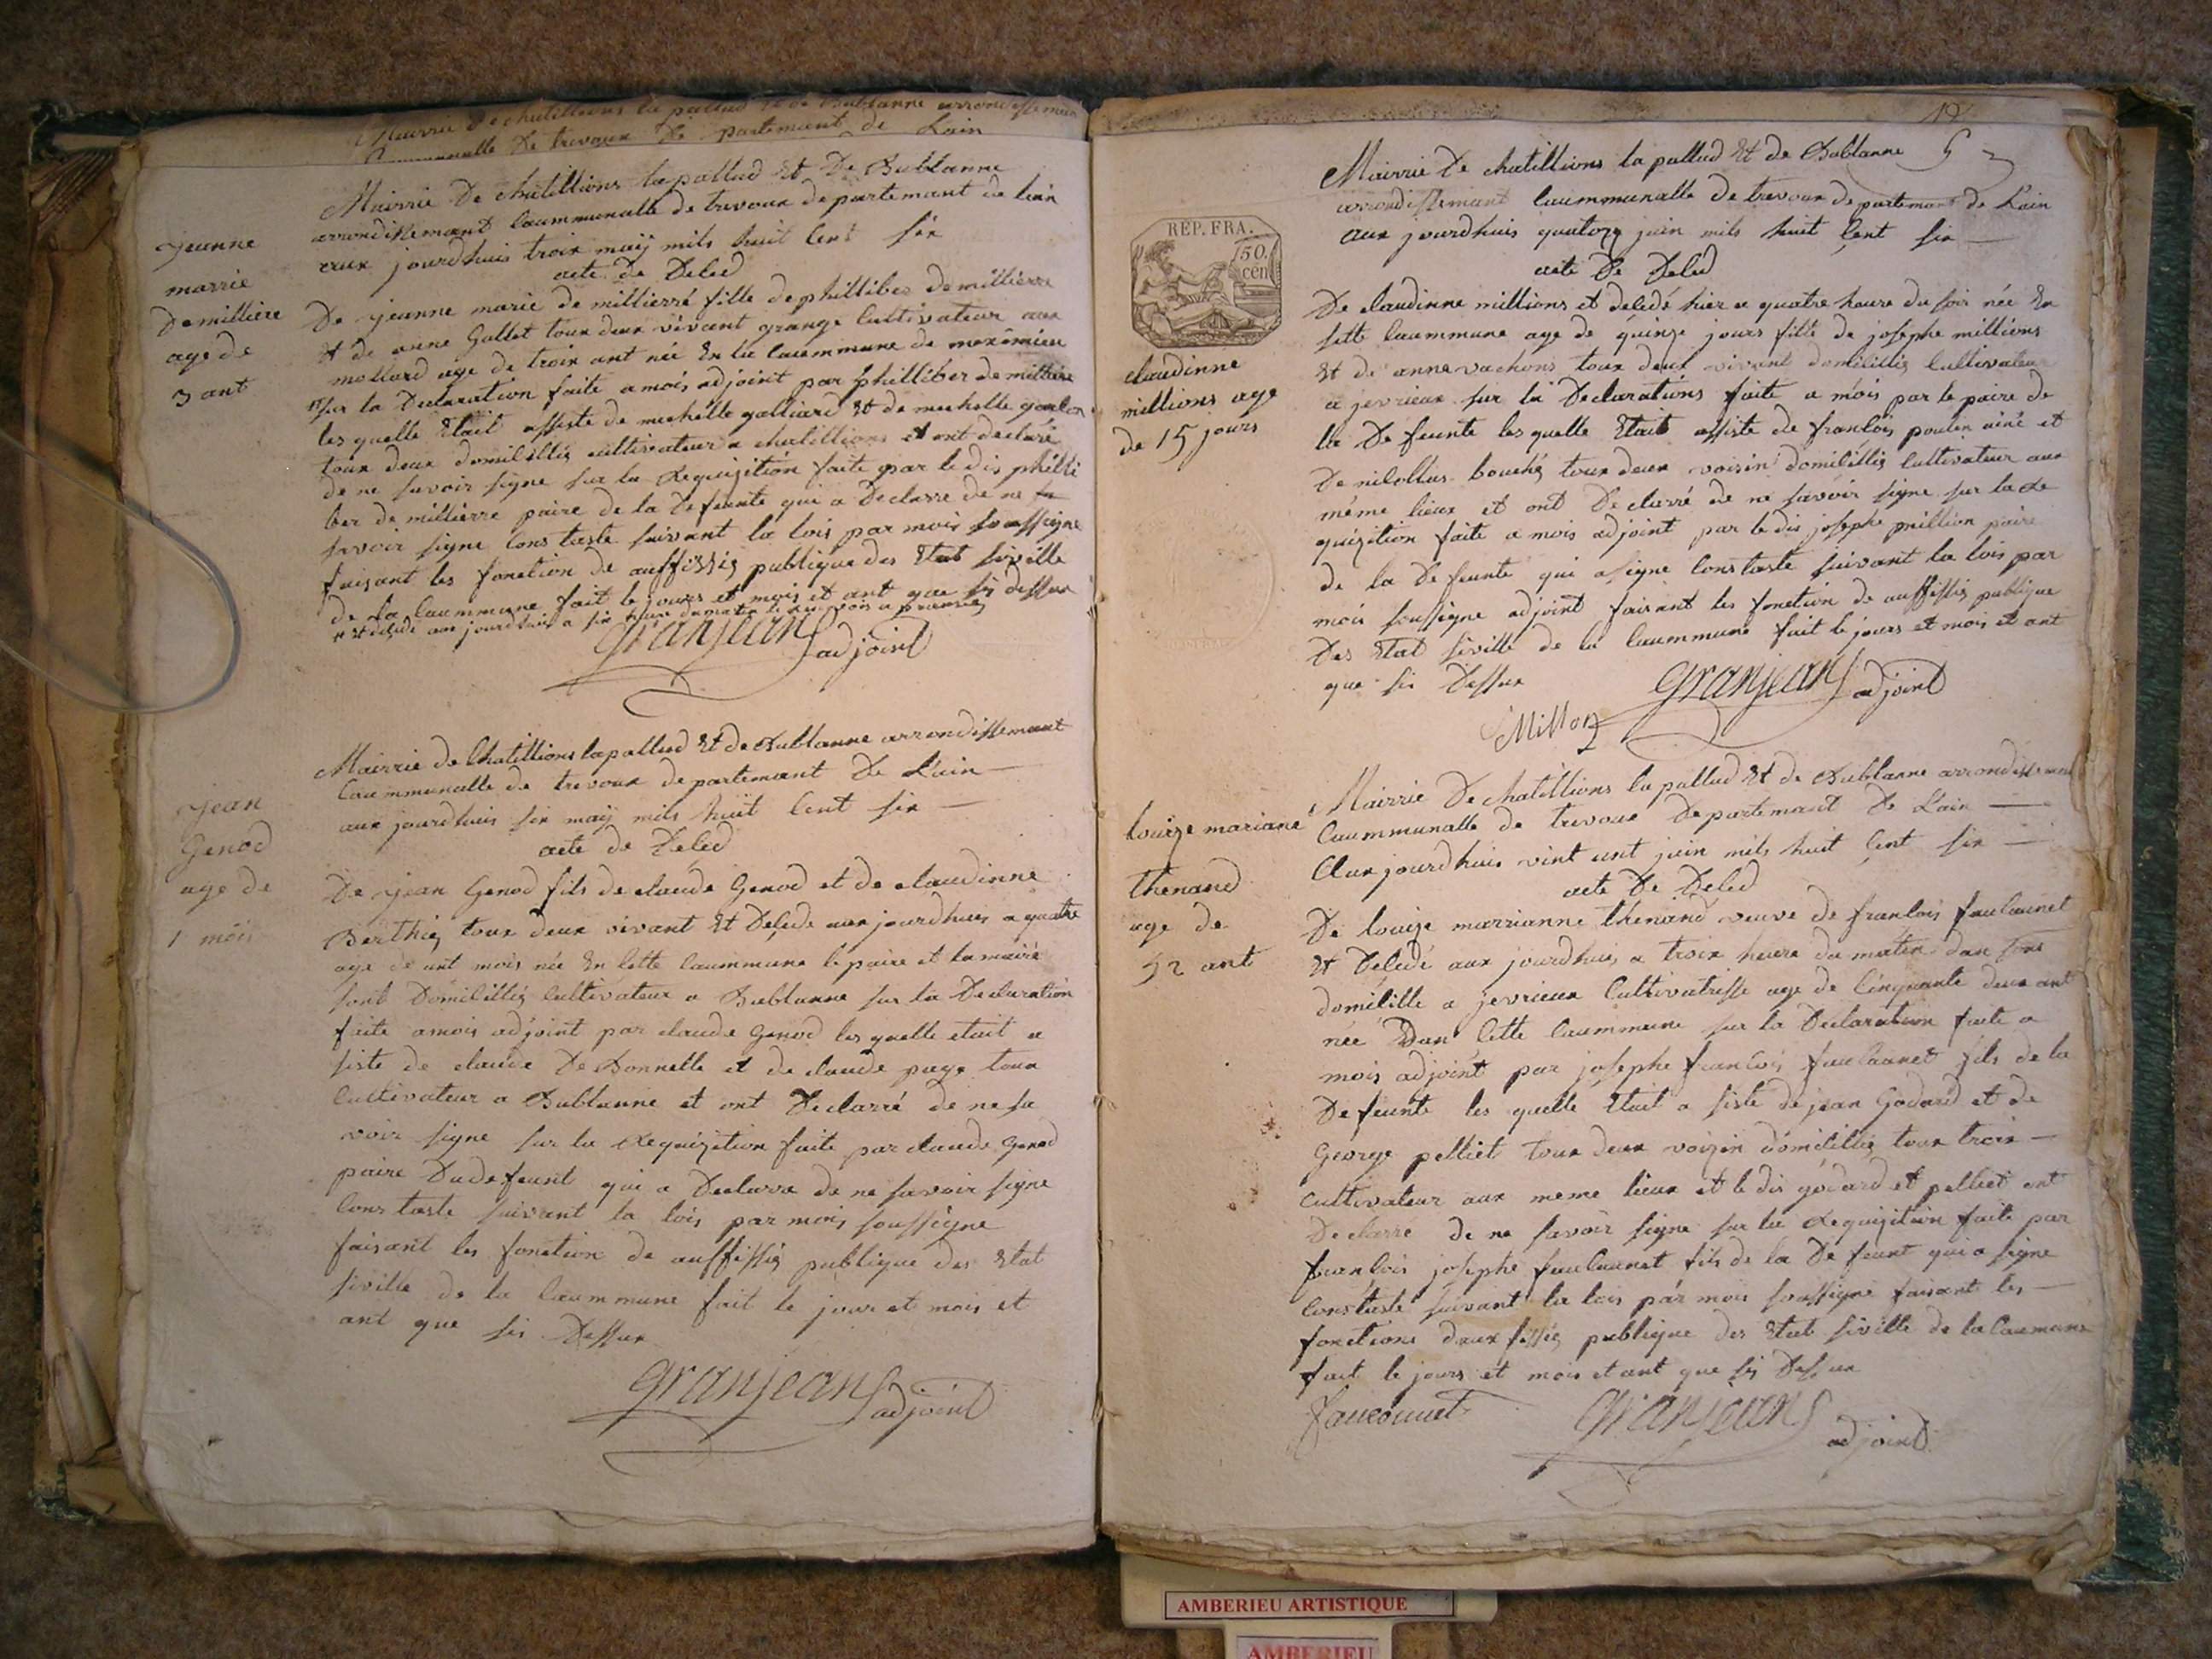 Mairrie de chatillions la pallud et de Bublanne arrondissemant
Caummunalle de trevoux de partemant de Lain
Mairrie de chatillions la pallud et De Bublanne
arrondissemant Caummunalle de trevoux departemant de lain
aux jourdhuis troix maij mils huit Cent six
acte de Deled
jeanne
marrie
Demilliere
age de
3 ant
De jeanne marie de millierré fille de phillibes demillierre
et de anne Gallet toux deux vivant grange Cultivateur aux
mollard age de troix ant née En la Caummune de meximieu
sur la Declaration faite a mois adjoint par philliber de milliere
les quelle Etait assiste de michelle galliard et de michelle
toux deux domicillis cultivateur a chatillions et ont declaré
de ne savoir signe sur la Requizition faite par le dis philli
ber de millierre paire de la Defeunte qui a Declarre de ne
savoir signe Constaste suivant la lois par mois soussigne
faizant les fonction de auffissis publique des Etat siville
de la Caummune fait le jours et mois et ant que sis dessux
et deledé aux jourdhuis a six heure du matin
Granjean adjoint
Mairrie de Chatillions la pallud et de Bublanne arrondissemant
Caummunalle de trevoux departemant De Lain
aux jourdhuis six maij mils huit Cent six
acte de Deled
jean
Genod
age de
1 mois
De jean Genod fils de claude Genod et de claudinne
Berthis toux deux vivant et Deledé aux jourdhuis a quatre
age de unt mois née En Cette Caummune le paire et la mairé
sont Domicillis Cultivateur a Bublanne sur la Declaration
faite a mois adjoint par claude Genod les quelle etait a
siste de claude De Bonnelle et de claude page toux
Cultivateur a Bublanne et ont Declarré de ne sa
voir signe sur la Requizition faite par claude Genod
paire Du defeunt qui a Declarra de ne savoir signe
Constaste suivant la lois par mois soussigne
faisant les fonction de auffissis publique des Etat
siville de la Caummune fait le jour et mois et
ant que sis Dessux
Granjean adjoint
19
5
Mairrie De chatillions la pallud Et de Bublanne
arrondissemant Caummunalle De trevoux de partemant de Lain
Aux jourdhuis quatorze juin mils huit Cent six
acte De Deled
REP. FRA.
50
cen
claudinne
millions age
de 15 jours
De claudinne millions et deledé hier a quatre heure du soir née En
sette Caummune age de quinze jours fille de josephe millions
Et de anne vachons toux deux vivant domicillis Cultivateur
a jevrieux sur la Declarations faite a mois par le paire de
la De feunte les quelle Etait assiste de francois poulin ainé et
De nicollas bouchis toux deux voisin domicillis Cultivateur aux
méme lieux et ont De clarré de ne savoir signe sur la Re
quizition faite a mois adjoint par le dis josephe million paire
de la De feunte qui a signe Constaste suivant la lois par
mois soussigne adjoint faisant les fonction de auffissis publique
Des Etat siville de la Caummune fait le jours et mois et ant
que sis Dessux
Granjean adjoint
Millon
Mairrie De chatillions la pallud Et de Bublanne arrondissemant
Caummunalle de trevoux Departemant De Lain
Aux jourdhuis vint unt juin mils huit Cent six
acte De Deled
louize mariane
thenand
age de
52 ant
De louize marrianne thenand veuve de francois faulcunet
Et Deledé aux jourdhuis a troix heure du matin dan sont
domicille a jevrieux Cultivatrisse age de Cinquante deux ant
née Dan Cette Caummune sur la Declaration faite a
mois adjoint par josephe francois faulcaunet fils de la
Defeunte les quelle Etait a siste de jean Godard et de
George pelliet toux deux voizin domicillis toux troix
Cultivateur aux meme lieux et le dis godard et pelliet ont
Declarré de ne savoir signe sur la Requizition faite par
francois josephe faulcaunet fils de la De feunt qui a signe
Constaste suivant la lois par mois soussigne faisant les
fonctions daux fissis publique des Etat siville de la Caumune
fait le jours et mois et ant que sis Dessux
Fauconnet
Granjean adjoint
AMBERIEU ARTISTIQUE
AMBERIEU